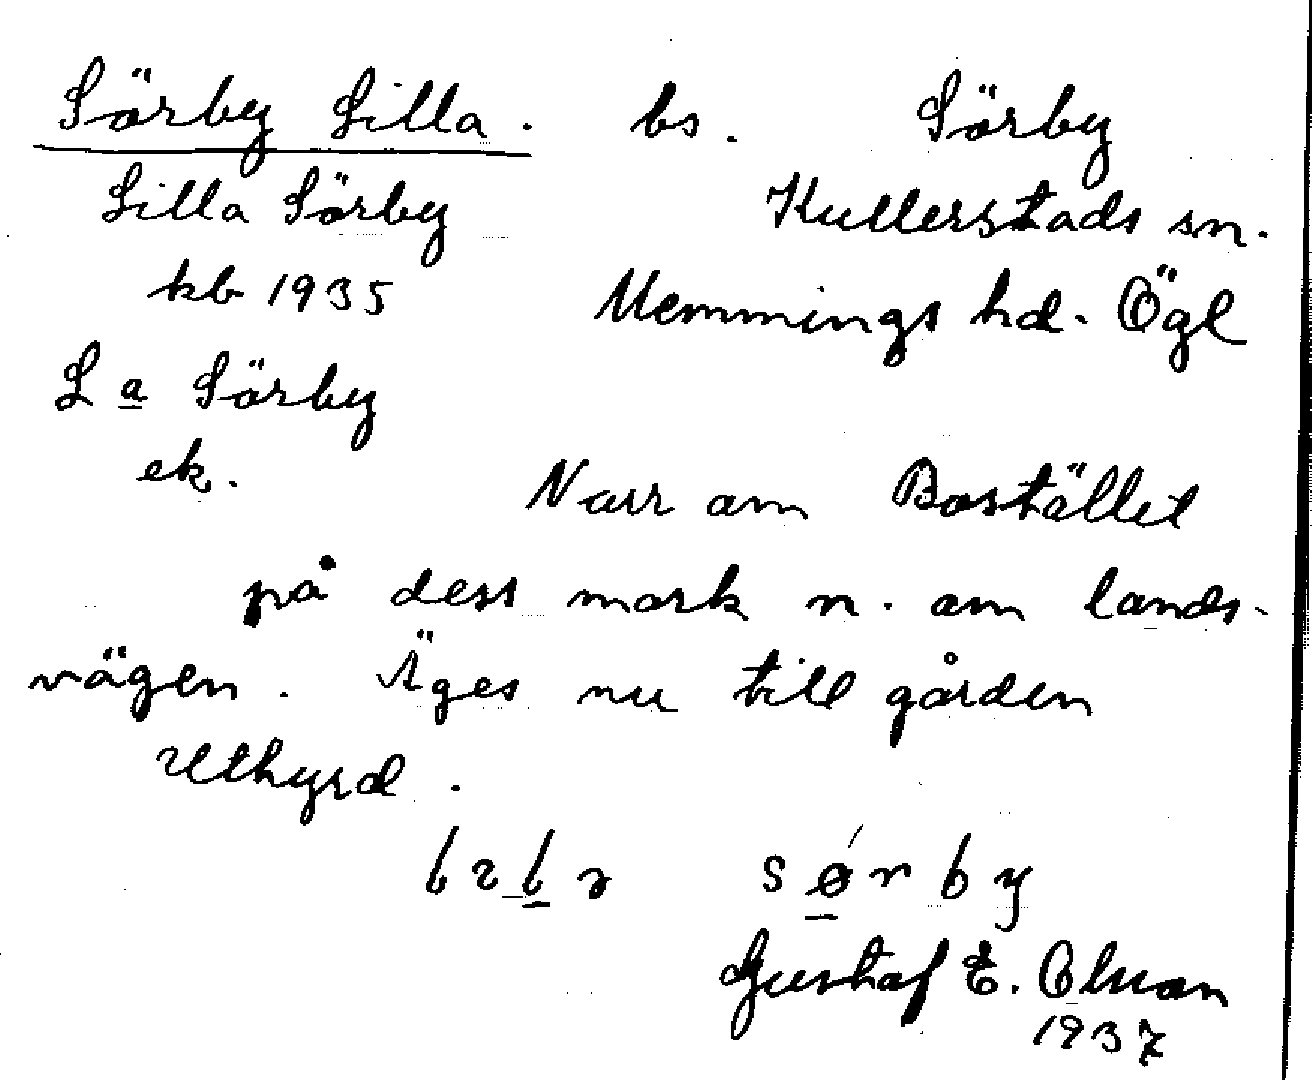 Sörby Lilla. bs. Sörby
Lilla Sörby Kullerstads sn.
kb 1935 Memmings hd. Ögl
L a Sörby
ek.
Norr om Bostället
på dess mark n. om lands-
vägen. Äges nu till gården
Uthyrd.
sørby
Gustaf E. Olsson
1937